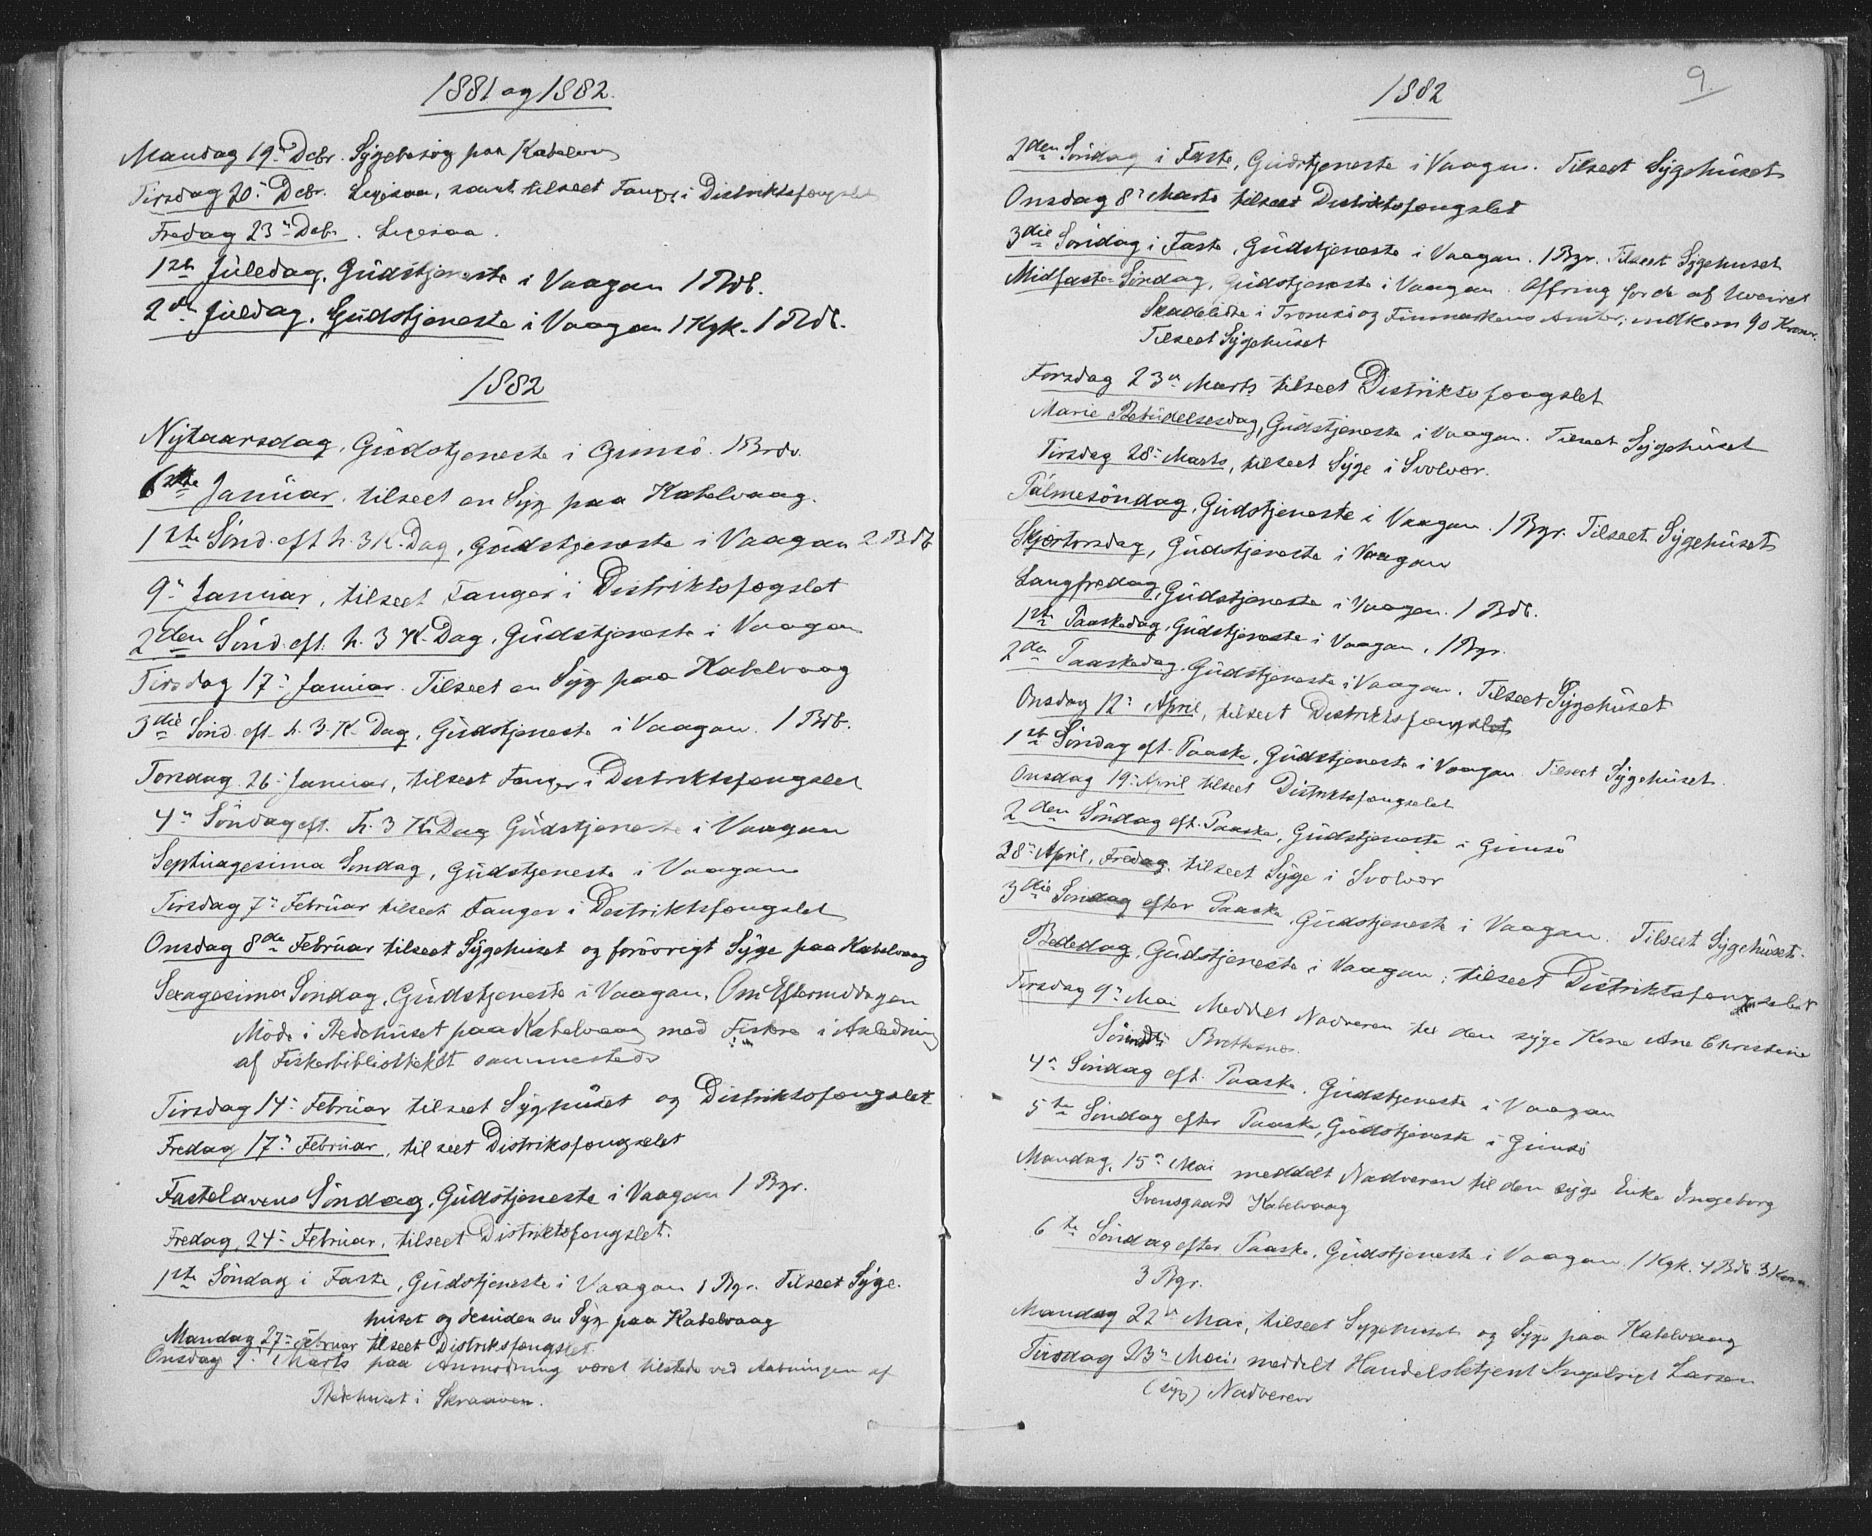 1881 og 1882.
Mandag 19de Decbr. Sygebesøg paa Kabelvaag
Tirsdag 20de Decbr. Ligesaa, samt tilseet Fanger i Distriktsfængslet
Fredag 23de Decbr. Ligesaa.
1ste Juledag, Gudstjeneste i Vaagan 1 Brdb.
2den Juledag, Gudstjeneste i Vaagan 1 Kgk. 1 Brdb.
1882
Nytaarsdag, Gudstjeneste i Gimsö. 1 Brdv.
6te Januar, tilseet en Syg paa Kabelvaag.
1ste Sönd. eft h. 3 K. Dag, Gudstjeneste i Vaagan 2 Bdb
9de Januar, tilseet Fanger i Distriktsfægslet
2den Sönd. eft. h. 3 K. Dag, Gudstjeneste i Vaagan
Tirsdag 17de Januar. Tilseet en Syg paa Kabelvaag
3die Sönd. eft. h. 3. K. Dag, Gudstjeneste i Vaagan. 1 Bdb.
Torsdag 26de Januar, tilseet Fanger i Distriktsfængslet
4de Söndag eft. h. 3 K. Dag Gudstjeneste i Vaagan
Septuagesima Söndag, Gudstjeneste i Vaagan
Tirsdag 7de Februar tilseet Fanger i Distriktsfængslet
Onsdag 8de Februar tilseet Sygehuset og forövrigt Syge paa Kabelvaag
Sexagesima Söndag, Gudstjeneste i Vaagan. Om Eftermiddagen
Möde i Bedehuset paa Kabelvaag med Fiskere i Anledning
af Fiskerbibliotheket sammesteds
Tirsdag 14de Februar tilseet Syghuset og Distriktsfængslet
Fredag 17de Februar, tilseet Distriksfængslet
Fastelavens Söndag, Gudstjeneste i Vaagan 1 Bgr.
Fredag, 24de Februar, tilseet Distriktsfængslet.
1ste Söndag i Faste, Gudstjeneste i Vaagan 1 Bgr. Tilseet Syge-
huset og desuden en Syg paa Kabelvaag
Mandag 27de Februar tilseet Distriksfængslet
Onsdag 1ste Marts paa Anmodning været tilstede ved Aabningen af
Bedehuset i Skraaven.
1882
9.
2den Söndag i Faste, Gudstjeneste i Vaagan. Tilseet Sygehuset
Onsdag 8de Marts tilseet Distriktsfængslet
3die Söndag i Faste, Gudstjeneste i Vaagan. 1 Bgr. Tilseet Sygehuset
Midfaste-Söndag, Gudstjeneste i Vaagan. Offring for de af Uveiret
Skadelidte i Tromsö og Finmarkens Amter; indkom 90 Kroner.
Tilseet Sygehuset
Torsdag 23de Marts tilseet Distriktsfængslet
Marie Bebudelsesdag, Gudstjeneste i Vaagan. Tilseet Sygehuset
Tirsdag 28de Marts, tilseet Syge i Svolvær.
Palmesöndag, Gudstjeneste i Vaagan. 1 Bgr. Tilseet Sygehuset
Skjærtorsdag, Gudstjeneste i Vaagan
Langfredag, Gudstjeneste i Vaagan. 1 Bdb.
1ste Paaskedag, Gudstjeneste i Vaagan, 1 Bgr.
2den Paaskedag. Gudstjeneste i Vaagan. Tilseet Sygehuset
Onsdag 12de April, tilseet Distriktsfængslet
1ste Söndag eft. Paaske, Gudstjeneste i Vaagan. Tilseet Sygehuset.
Onsdag 19de April tilseet Distriktsfængslet
2den Söndag eft. Paaske, Gudstjeneste i Gimsö
28de April, Fredag, tilseet Syge i Svolvær
3die Söndag efter Paaske, Gudstjeneste i Vaagan. Tilseet Sygehuset.
Bededag, Gudstjeneste i Vaagan; tilseet Distriktsfængslet
Tirsdag 9de Mai Meddelt Nadveren til den syge Kone Ane Christine
Brettesnæs.
4de Söndag eft. Paaske, Gudstjeneste i Vaagan
5te Söndag efter Paaske, Gudstjeneste i Gimsö
Mandag, 15de Mai meddelt Nadveren til den syge Enke Ingeborg
Svensgaard Kabelvaag
6te Söndag efter Paaske, Gudstjeneste i Vaagan. 1 Kgk. 4 Bdb. 3 Kom.
3 Bgr.
Mandag 22de Mai, tilseet Sygehuset og Syge paa Kabelvaag
Tirsdag 23de Mai, meddelt Handelsbetjent Ingebrigt Larsen
(syg) Nadveren